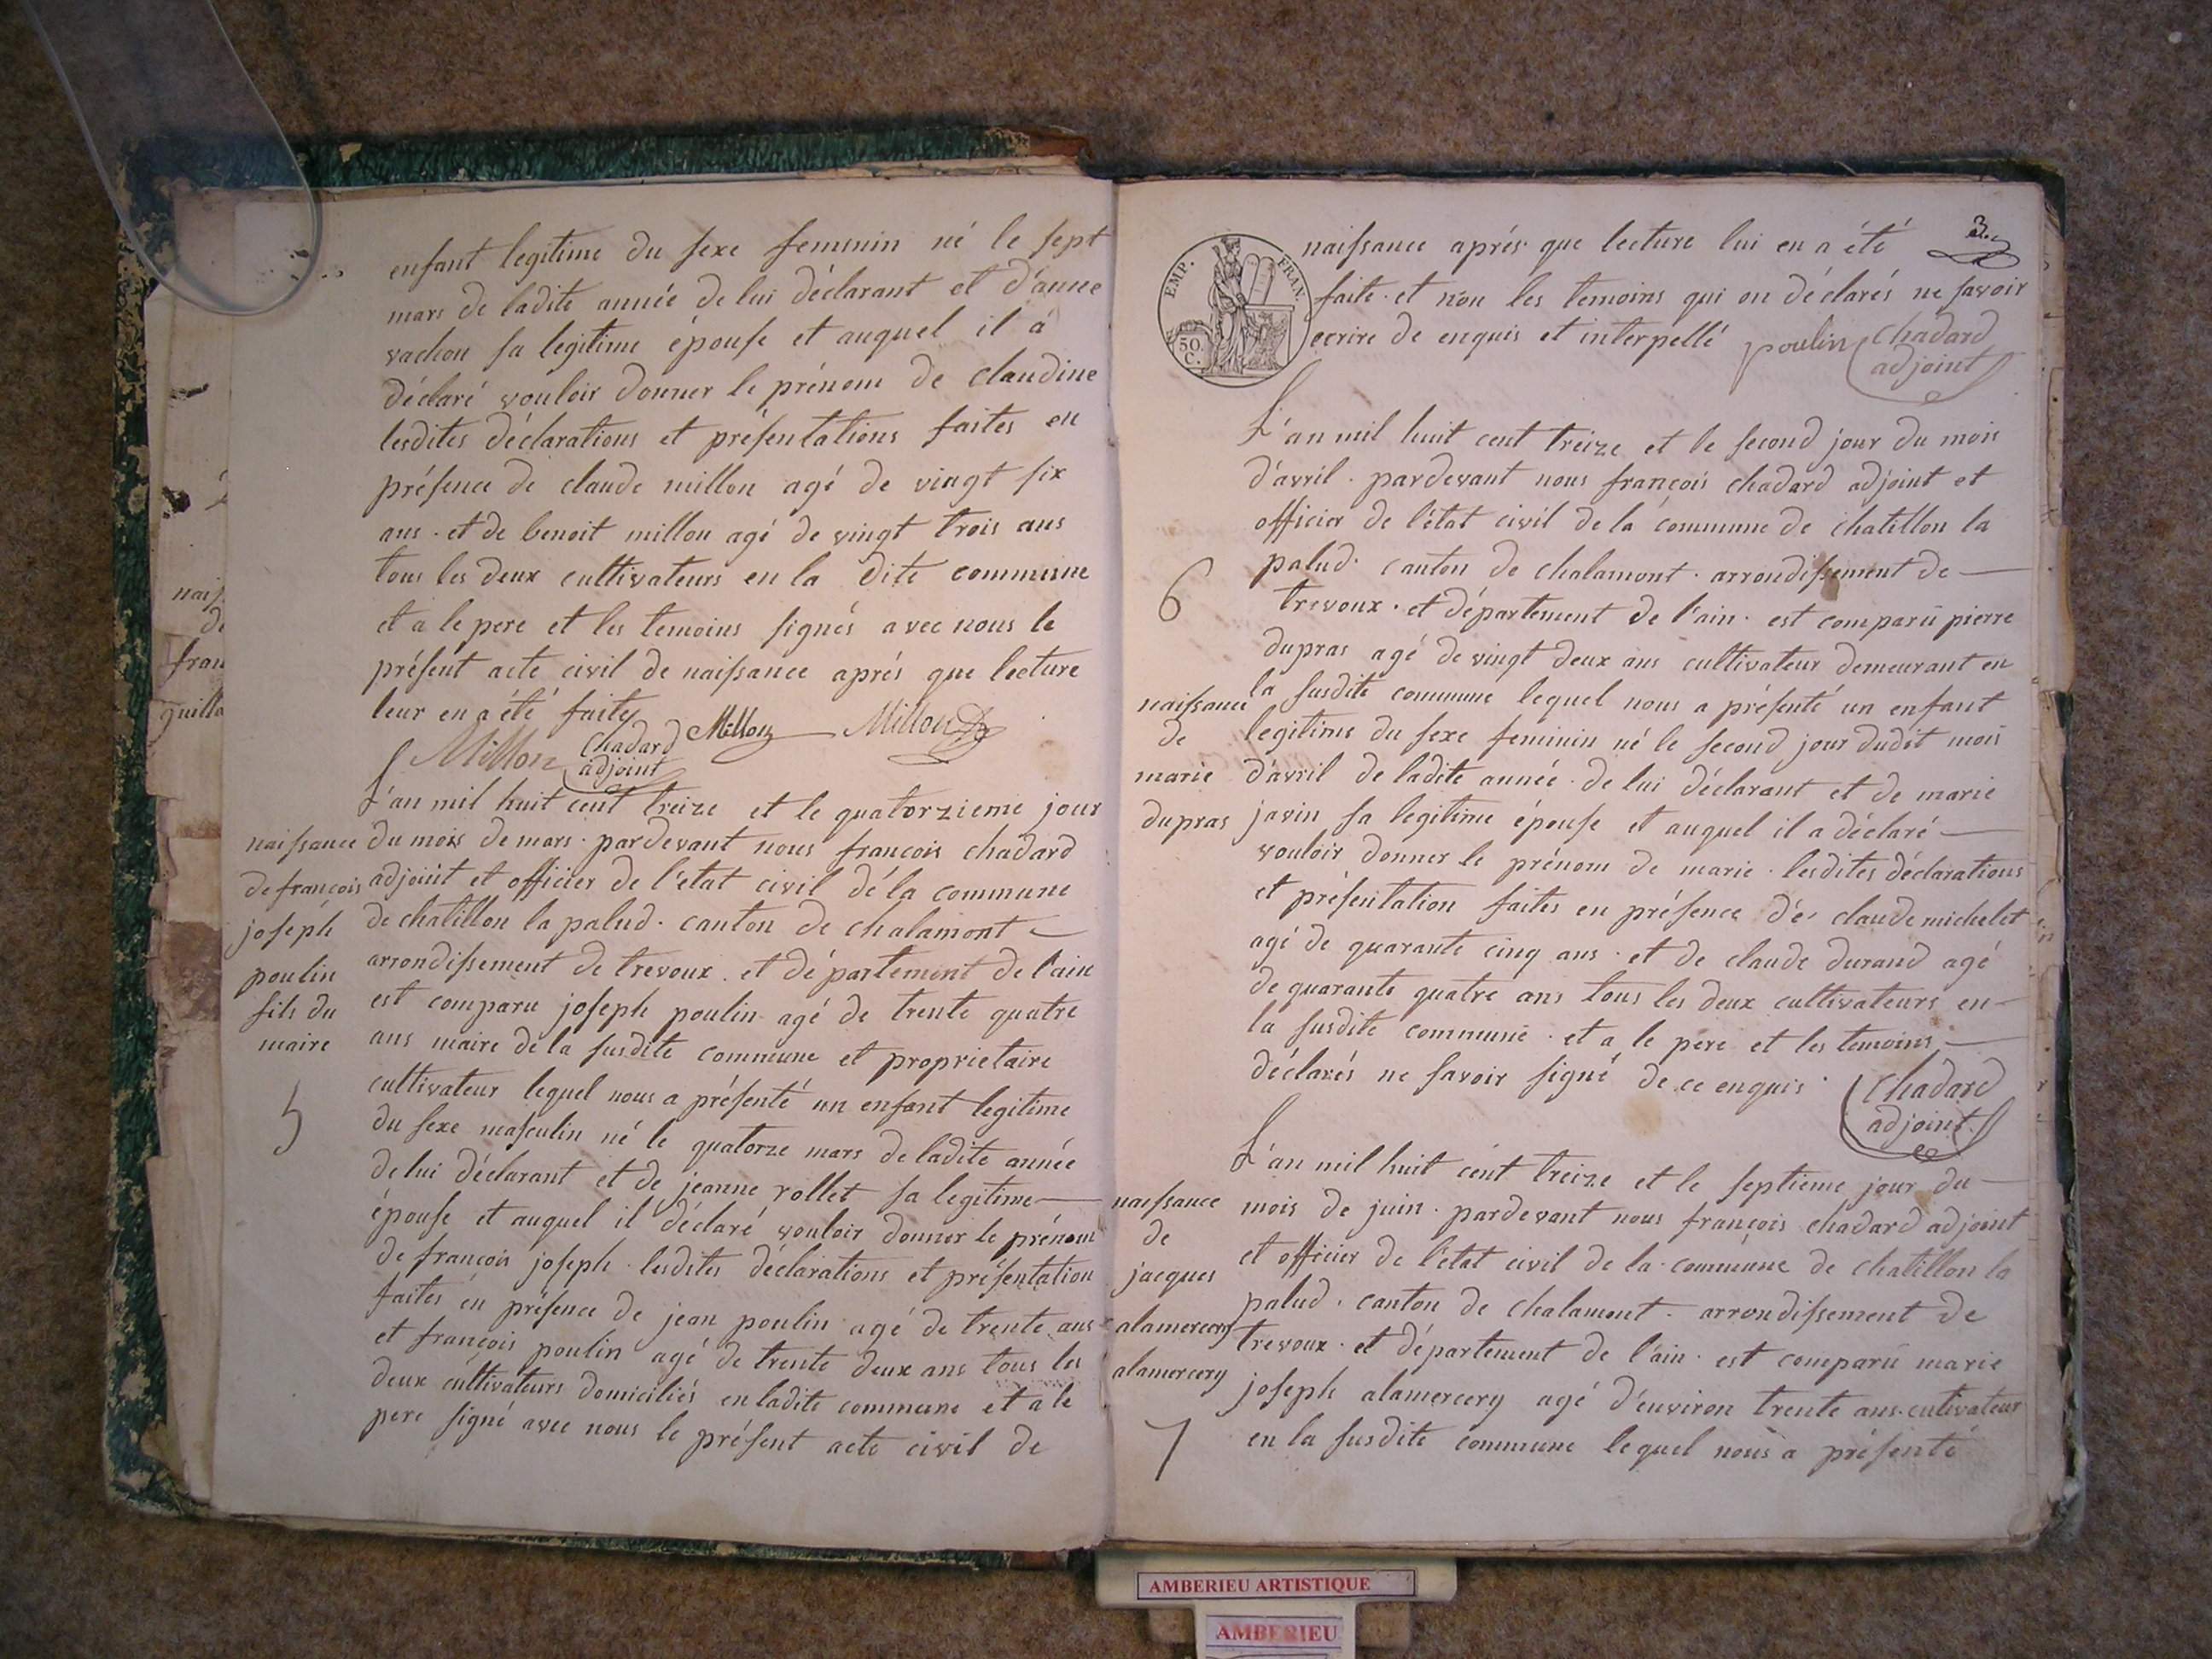 enfant legitime du sexe feminin né le sept
mars de ladite année de lui déclarant et d'anne
vachon sa legitime épouse et auquel il à
déclaré vouloir donner le prénom de claudine
lesdites déclarations et présentations faites en
présence de claude millon agé de vingt six
ans . et de benoit millon agé de vingt trois ans
tous les deux cultivateurs en la dite commune
et a le pere et les temoins signés avec nous le
présent acte civil de naissance aprés que lecture
leur en a été faite
Millon Chadard adjoint Millon Millon
L'an mil huit cent treize et le quatorzieme jour
du mois de mars . pardevant nous francois chadard
adjoint et officier de l'etat civil dé la commune
de chatillon la palud . canton de chalamont
arrondissement de trevoux . et département de l'ain
est comparu joseph poulin agé de trente quatre
ans maire de la susdite commune et proprietaire
cultivateur lequel nous a présenté un enfant legitime
du sexe masculin né le quatorze mars de ladite année
de lui déclarant et de jeanne rollet sa legitime
épouse et auquel il déclaré vouloir donner le prénom
de françois joseph . lesdites déclarations et présentation
faites en présence de jean poulin agé de trente ans
et françois poulin agé de trente deux ans tous les
deux cultivateurs domiciliés en ladite commune et a le
pere signé avec nous le présent acte civil de
naissance
de francois
joseph
poulin
fils du
maire
5
nais
de
fran
guilla
3
EMP. FRAN.
50 C.
naissance aprés que lecture lui en a été
faite . et non les temoins qui on déclarés ne savoir
ecrire de enquis et interpellé poulin Chadard
adjoint
L'an mil huit cent treize et le second jour du mois
d'avril . pardevant nous françois chadard adjoint et
officier de l'état civil de la commune de chatillon la
palud . canton de chalamont . arrondissement de
trevoux . et département de l'ain . est comparu pierre
dupras agé de vingt deux ans cultivateur demeurant en
la susdite commune lequel nous a présenté un enfant
legitime du sexe feminin né le second jour dudit mois
d'avril de ladite année . de lui déclarant et de marie
javin sa legitime épouse et auquel il a déclaré
vouloir donner le prénom de marie . lesdites déclarations
et présentation faites en présence de claude michelet
agé de quarante cinq ans . et de claude durand agé
de quarante quatre ans tous les deux cultivateurs en
la susdite commune . et a le pere et les temoins
déclarés ne savoir signé de ce enquis . Chadard
adjoint
6
naissance
de
marie
dupras
L'an mil huit cent treize et le septieme jour du
mois de juin . pardevant nous françois chadard adjoint
et officier de l'état civil de la commune de chatillon la
palud . canton de chalamont . arrondissement de
trevoux . et département de l'ain . est comparu marie
joseph alamercery agé d'environ trente ans cultivateur
en la susdite commune lequel nous a présenté
naissance
de
jacques
alamercery
alamercery
7
AMBERIEU ARTISTIQUE
AMBERIEU